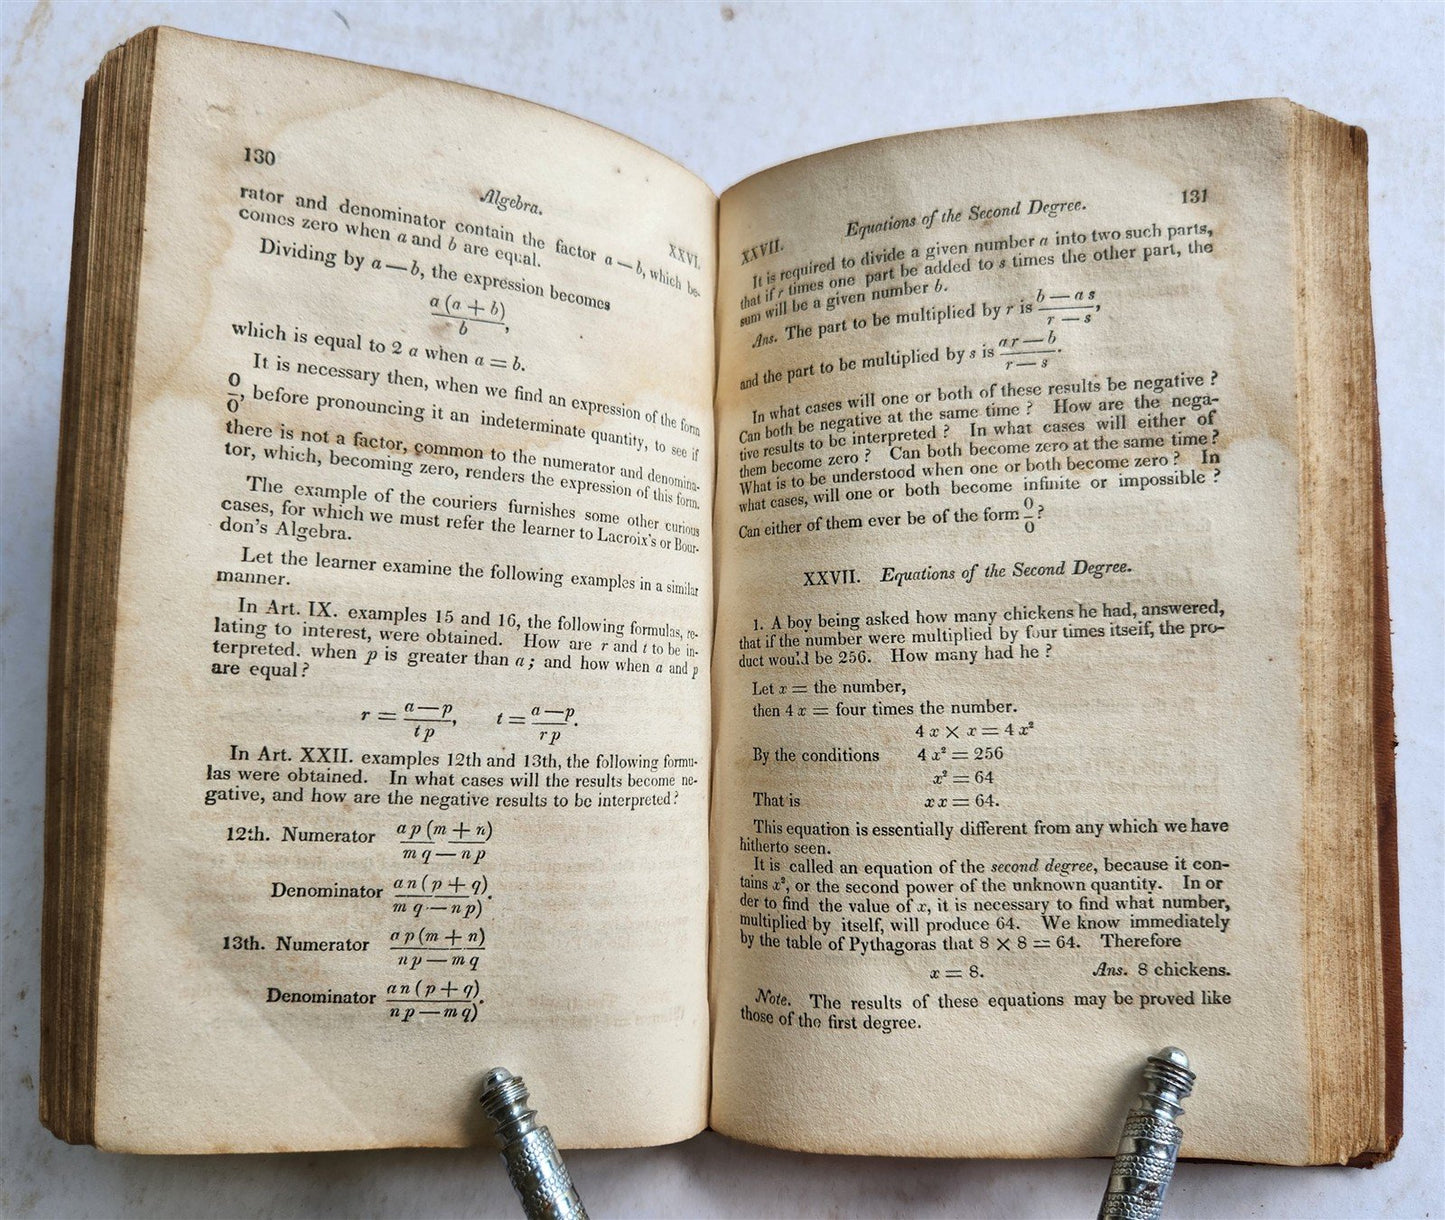 130
Algebra.
XXVI.
rator and denominator contain the factor a — b, which be-
comes zero when a and b are equal.
Dividing by a — b, the expression becomes
a (a + b)
b ,
which is equal to 2 a when a = b.
It is necessary then, when we find an expression of the form
0
0 , before pronouncing it an indeterminate quantity, to see if
there is not a factor, common to the numerator and denomina-
tor, which, becoming zero, renders the expression of this form.
The example of the couriers furnishes some other curious
cases, for which we must refer the learner to Lacroix's or Bour-
don's Algebra.
Let the learner examine the following examples in a similar
manner.
In Art. IX. examples 15 and 16, the following formulas, re-
lating to interest, were obtained. How are r and t to be in-
terpreted. when p is greater than a; and how when a and p
are equal?
r = a — p / t p, t = a — p / r p.
In Art. XXII. examples 12th and 13th, the following formu-
las were obtained. In what cases will the results become ne-
gative, and how are the negative results to be interpreted?
12th. Numerator a p (m + n)
m q — n p
Denominator a n ( p + q) .
m q — n p)
13th. Numerator a p (m + n)
n p — m q
Denominator a n ( p + q) .
n p — m q)
XXVII.
Equations of the Second Degree.
131
It is required to divide a given number a into two such parts,
that if r times one part be added to s times the other part, the
sum will be a given number b.
Ans. The part to be multiplied by r is b — a s / r — s ,
and the part to be multiplied by s is a r — b / r — s .
In what cases will one or both of these results be negative?
Can both be negative at the same time? How are the nega-
tive results to be interpreted? In what cases will either of
them become zero? Can both become zero at the same time?
What is to be understood when one or both become zero? In
what cases, will one or both become infinite or impossible?
Can either of them ever be of the form 0 / 0 ?
XXVII. Equations of the Second Degree.
1. A boy being asked how many chickens he had, answered,
that if the number were multiplied by four times itself, the pro-
duct would be 256. How many had he?
Let x = the number,
then 4 x = four times the number.
4 x × x = 4 x²
By the conditions 4 x² = 256
x² = 64
That is x x = 64.
This equation is essentially different from any which we have
hitherto seen.
It is called an equation of the second degree, because it con-
tains x², or the second power of the unknown quantity. In or
der to find the value of x, it is necessary to find what number,
multiplied by itself, will produce 64. We know immediately
by the table of Pythagoras that 8 × 8 = 64. Therefore
x = 8. Ans. 8 chickens.
Note. The results of these equations may be proved like
those of the first degree.